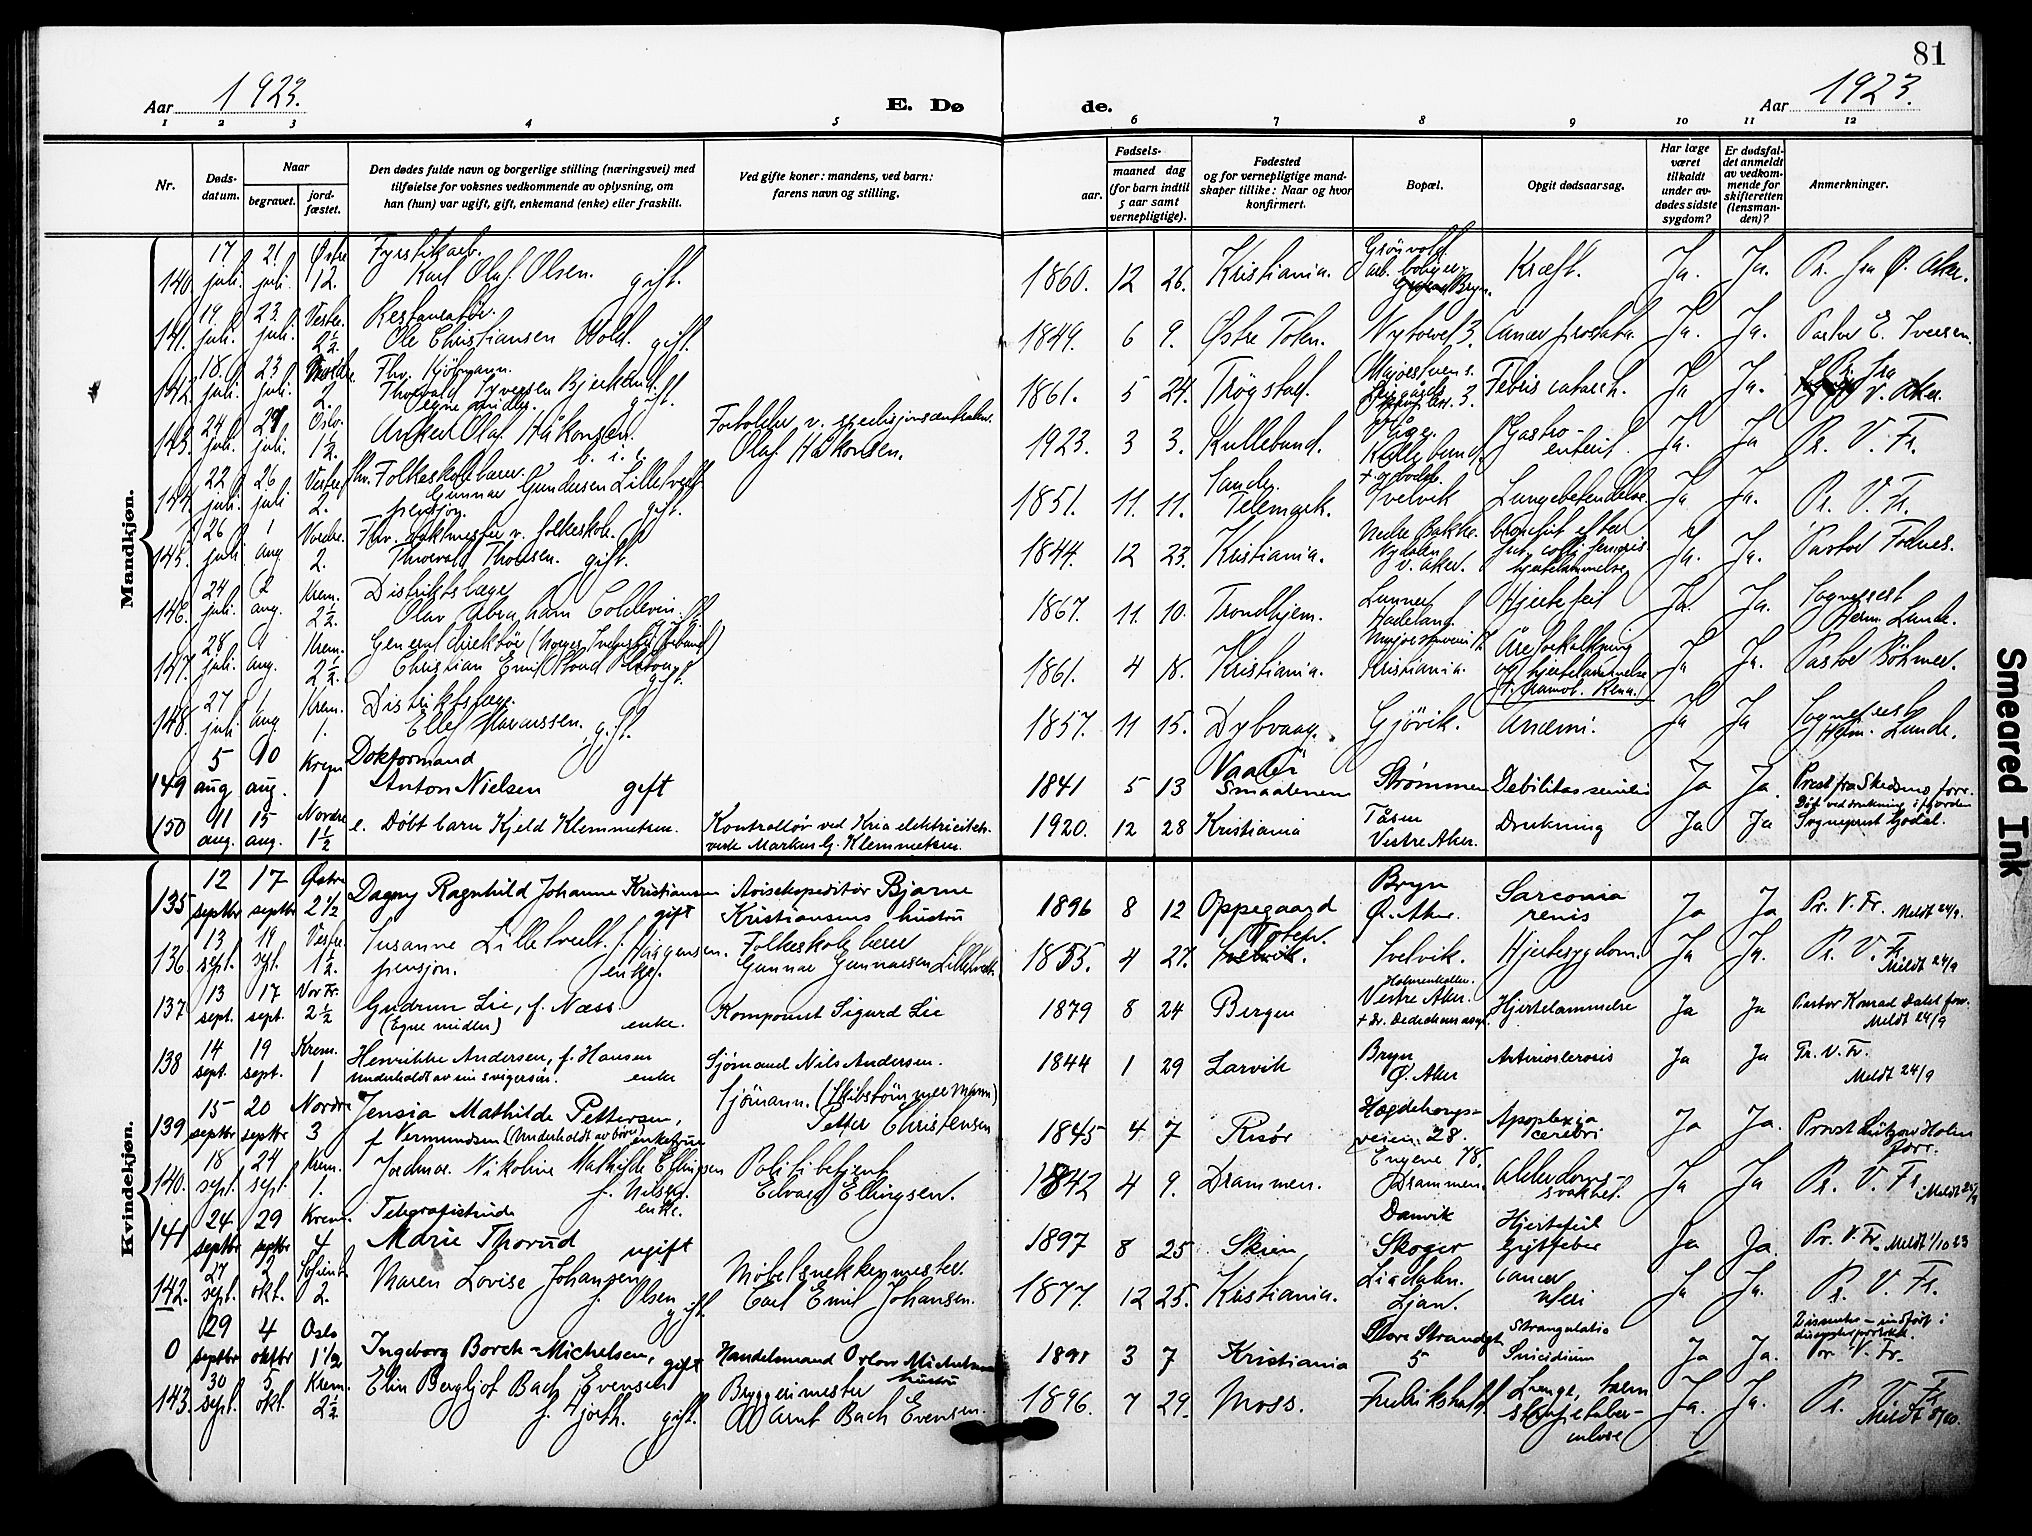 81
Aar 1923.
E. Dø
de.
Aar 1923.
1 2 3 4 5 6 7 8 9 10 11 12
Nr.
Døds-
datum.
Naar
begravet.
jord-
fæstet.
Den dødes fulde navn og borgerlige stilling (næringsvei) med
tilføielse for voksnes vedkommende av oplysning, om
han (hun) var ugift, gift, enkemand (enke) eller fraskilt.
Ved gifte koner: mandens, ved barn:
farens navn og stilling.
Fødsels-
aar.
maaned dag
(for barn indtil
5 aar samt
vernepligtige).
Fødested
og for vernepligtige mand-
skaper tillike: Naar og hvor
konfirmert.
Bopæl.
Opgit dødsaarsag.
Har læge
været
tilkaldt
under av-
dødes sidste
sygdom?
Er dødsfal-
det anmeldt
av vedkom-
mende for
skifteretten
(lensman-
den)?
Anmerkninger.
Mandkjøn.
140. 17 juli. 21 juli. Østre 12. Fyrstikarb. Karl Olaf Olsen. gift. 1860. 12 26. Kristiania. Grönvold arb. boliger Bryn. Kræft. Ja. Ja. Pr. fra Ø. Aker.
141. 19 juli. 23. juli. Vestre. 2½ Restauratør. Ole Christiansen Wold. gift. 1849. 6 9. Østre Toten. Nytorvet 3. Cancer prostata. Ja. Ja. Pastor E. Iversen.
142. 18. juli. 23 juli. Nordre. 2. Fhv. Kjöbmann. Thorvald Syversen Bjerkeng. Egne midler. gift. 1861. 5 24. Trøgstad. Majorstuens 3. Febris catarrh. Ja Ja. Pr. fra V. Aker.
143. 24 juli. 28 juli. Oslo. 1½. Anker Olaf Håkonsen. Forvalter v. Olaf Håkonsen. 1923. 3 3. Kullebund. Kullebund. Gastro-enterit. Ja. Ja Pr. V. Fr.
144. 22 juli. 26 juli Vestre 2. fhv. Folkeskolelærer. Gunnar Gundersen Lilletvedt pensjon. gift. 1851. 11. 11. Sande. Telemark. Svelvik Lungebetendelse Ja Ja. Pr. V. Fr.
145. 26 juli 1 aug Nordre. 2. Fhv. vaktmester v. folkeskole. Thorvald Thorsen. gift. 1844. 12 23. Kristiania. Nedre Bakke. Nydalen V. Aker. bronchit efter fract. colli femoris. hjertelammelse Ja. Ja. Pastor Fodnes.
146. 24 juli. 2 aug. Krem. 2½. Distriktslæge Olav Abraham Coldevin. gift. 1867. 11. 10. Trondhjem. Lunner Hadeland. Hjertefeil Ja. Ja. Sogneprest Herm. Lunde.
147. 28 juli. 1 aug. Krem. 2½ Generaldirektør (Norges Industriforbund) Christian Emil Stoud Platou. gift. 1861. 4 18. Kristiania. Majorstuvei 17 Kristiania. Åreforkalkning og hjertelammelse († Hamob. Rena.) Ja Ja. Pastor Böhmer.
148. 27 juli 1 aug Krem. 1. Distriktslæge. Ellef Mararssen. gift. 1857. 11 15. Dybvaag. Gjövik. Anæmi. Ja Ja Sogneprest Herm. Lunde.
149 5 aug 10 aug. Krem 1 Doktormand Anton Nielsen gift 1841 5 13 Vaaler Smaalenene Strømmen Debilitas senilis Ja Ja. Prest fra Skedsmo forr.
150 11 aug. 15 aug. Nordre 1½ e. Döbt barn Kjeld Klemmetsen. Kontrollör ved Kria elektricitets-verk Markus G. Klemmetsen. 1920. 12 28 Kristiania Tåsen Vestre Aker. Drukning Ja Ja Död ved drukning i fjorden Sogneprest Hjodal.
Kvindekjøn.
135 12 septbr 17 septbr Østre 2 1/2 Dagny Ragnhild Johanne Kristiansen gift Avisekspeditør Bjarne Kristiansens hustru 1896 8 12 Oppegaard Bryn Ø. Aker. Sarcoma renis Ja Ja Pr. V. Fr. Meldt 24/9.
136. 13 sept. 19 sept. Vestre 1½. Susanne Lilletvedt f. Haagensen. pensjon. enke. Folkeskolelærer Gunnar Gunnarsen Lilletvedt. 1855. 4 27. Toten. Svelvik. Svelvik. Hjertesygdom. Ja Ja. Pr. V. Fr. Meldt 24/9
137 13 sept. 17 sept. Vor Fr. 2½ Gudrun Lie, f. Næss. (Egne midler) enke. Komponist Sigurd Lie 1879 8 24 Bergen Holmenkollen. Vestre Aker. † Dr. Dedichens asyl. Hjertelammelse Ja Ja Pastor Konrad Dahl forr. Meldt 24/9
138 14 sept. 19 sept. Krem. 1 Henrikke Andersen, f. Hansen Underholdt av sin svigersøn. enke Sjømand Nils Andersen. 1844 1 29 Larvik Bryn Ø. Aker Arteriosclerosis Ja Ja Fr. V. Fr. Meldt 24/9
139 15 septbr 20 septbr Nordre 3 Jensia Mathilde Pettersen, f Vermundsen (Underholdt av börn) enkefrue Sjömann. (Skibstømmermann) Petter Christensen 1845 4 7 Risör Hegdehaugs-veien 28. Apoplexia cerebri Ja Ja. Prost Lützow Holm forr.
140. 18 sept. 24 sept. Krem. 1. Nikoline Mathilde Ellingsen f. Nilsen. enke. Politibetjent Edvard Ellingsen. 1842 4 9. Drammen. Engene 78. Drammen. Alderdoms-svakhet. Ja Ja Pr. V. Fr. Meldt 25/9
141 24 septbr 29 septbr Krem. 4 Telegrafistinde Marie Thorud ugift 1897 8 25 Skien, Danvik Skoger Hjertefeil Gigtfeber Ja Ja. Pr. V. Fr. Meldt 1/10 23
142. 27 sept. 2 okt. Sofienb. 2. Maren Lovise Johansen f. Olsen gift. Möbelsnekkermester. Carl Emil Johansen. 1877. 12 25. Kristiania. Liadalen. Ljan. cancer uteri Ja Ja. Pr. V. Fr.
0 29 septbr 4 oktbr Oslo 1 1/2 Ingeborg Borch-Michelsen, gift Handelsmand Orlow Michelsens hustru 1891 3 7 Kristiania Store Strandgt 5 Strangulatio Suicidium Ja Ja. Pr. V. Fr.
143. 30 sept. 5 okt. Krem. 2½ Elin Bergljot Bach Evensen f. Hjorth. gift. Bryggerimester Arnt Bach Evensen. 1896. 7 29. Moss. Fredrikshald. Lunge, tarm strupetuber-culose Ja. Ja. Pr. V. Fr. Meldt 8/10.
Smeared Ink